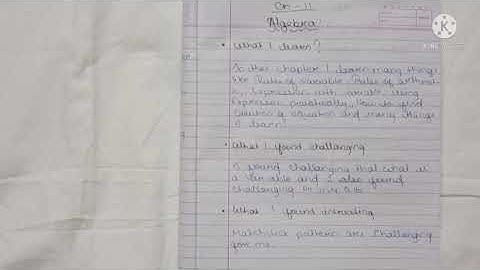 Ch - 11
Algebra
• What I learn?
In this chapter I learn many things
like Rules of variable Rules of arithmetic
Expression with variable Using
Expression practically, How to find
solution of equation and many things
I learn
• What I found challanging
I found challenging that what is
a variable and I also found
challenging
• What I found intresting
Matchstick patterns are challenging
for me
K
KINE